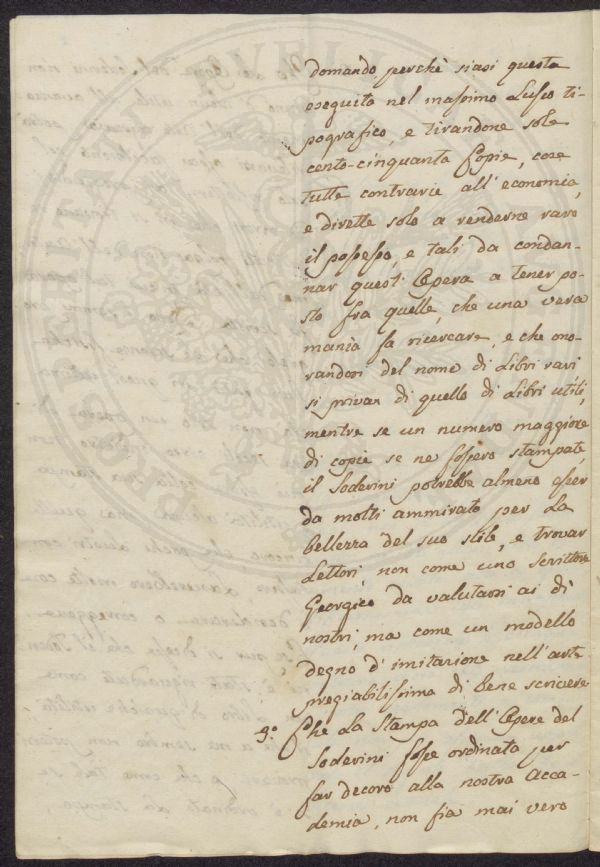 domando, perchè siasi questa
eseguita nel massimo Lusso ti-
pografico, e tirandone sole
cento-cinquanta Copie, cose
tutte contrarie all'economia,
e dirette solo a renderne raro
il possesso, e tali da condan-
nar quest'Opera a tener po-
sto fra quelle, che una vera
mania fa ricercare, e che ono-
randosi del nome di Libri rari
si privan di quello di Libri utili,
mentre se un numero maggiore
di copie se ne fossero stampate,
il Soderini potrebbe almeno esser
da molti ammirato per La
bellezza del suo stile, e trovar
Lettori, non come uno Scrittore
Georgico da valutarsi ai dì
nostri, ma come un modello
degno d'imitazione nell'arte
pregiabilissima di bene scrivere
3.º Che La Stampa dell'Opere del
Soderini fosse ordinata per
far decoro alla nostra Acca-
demia, non fia mai vero